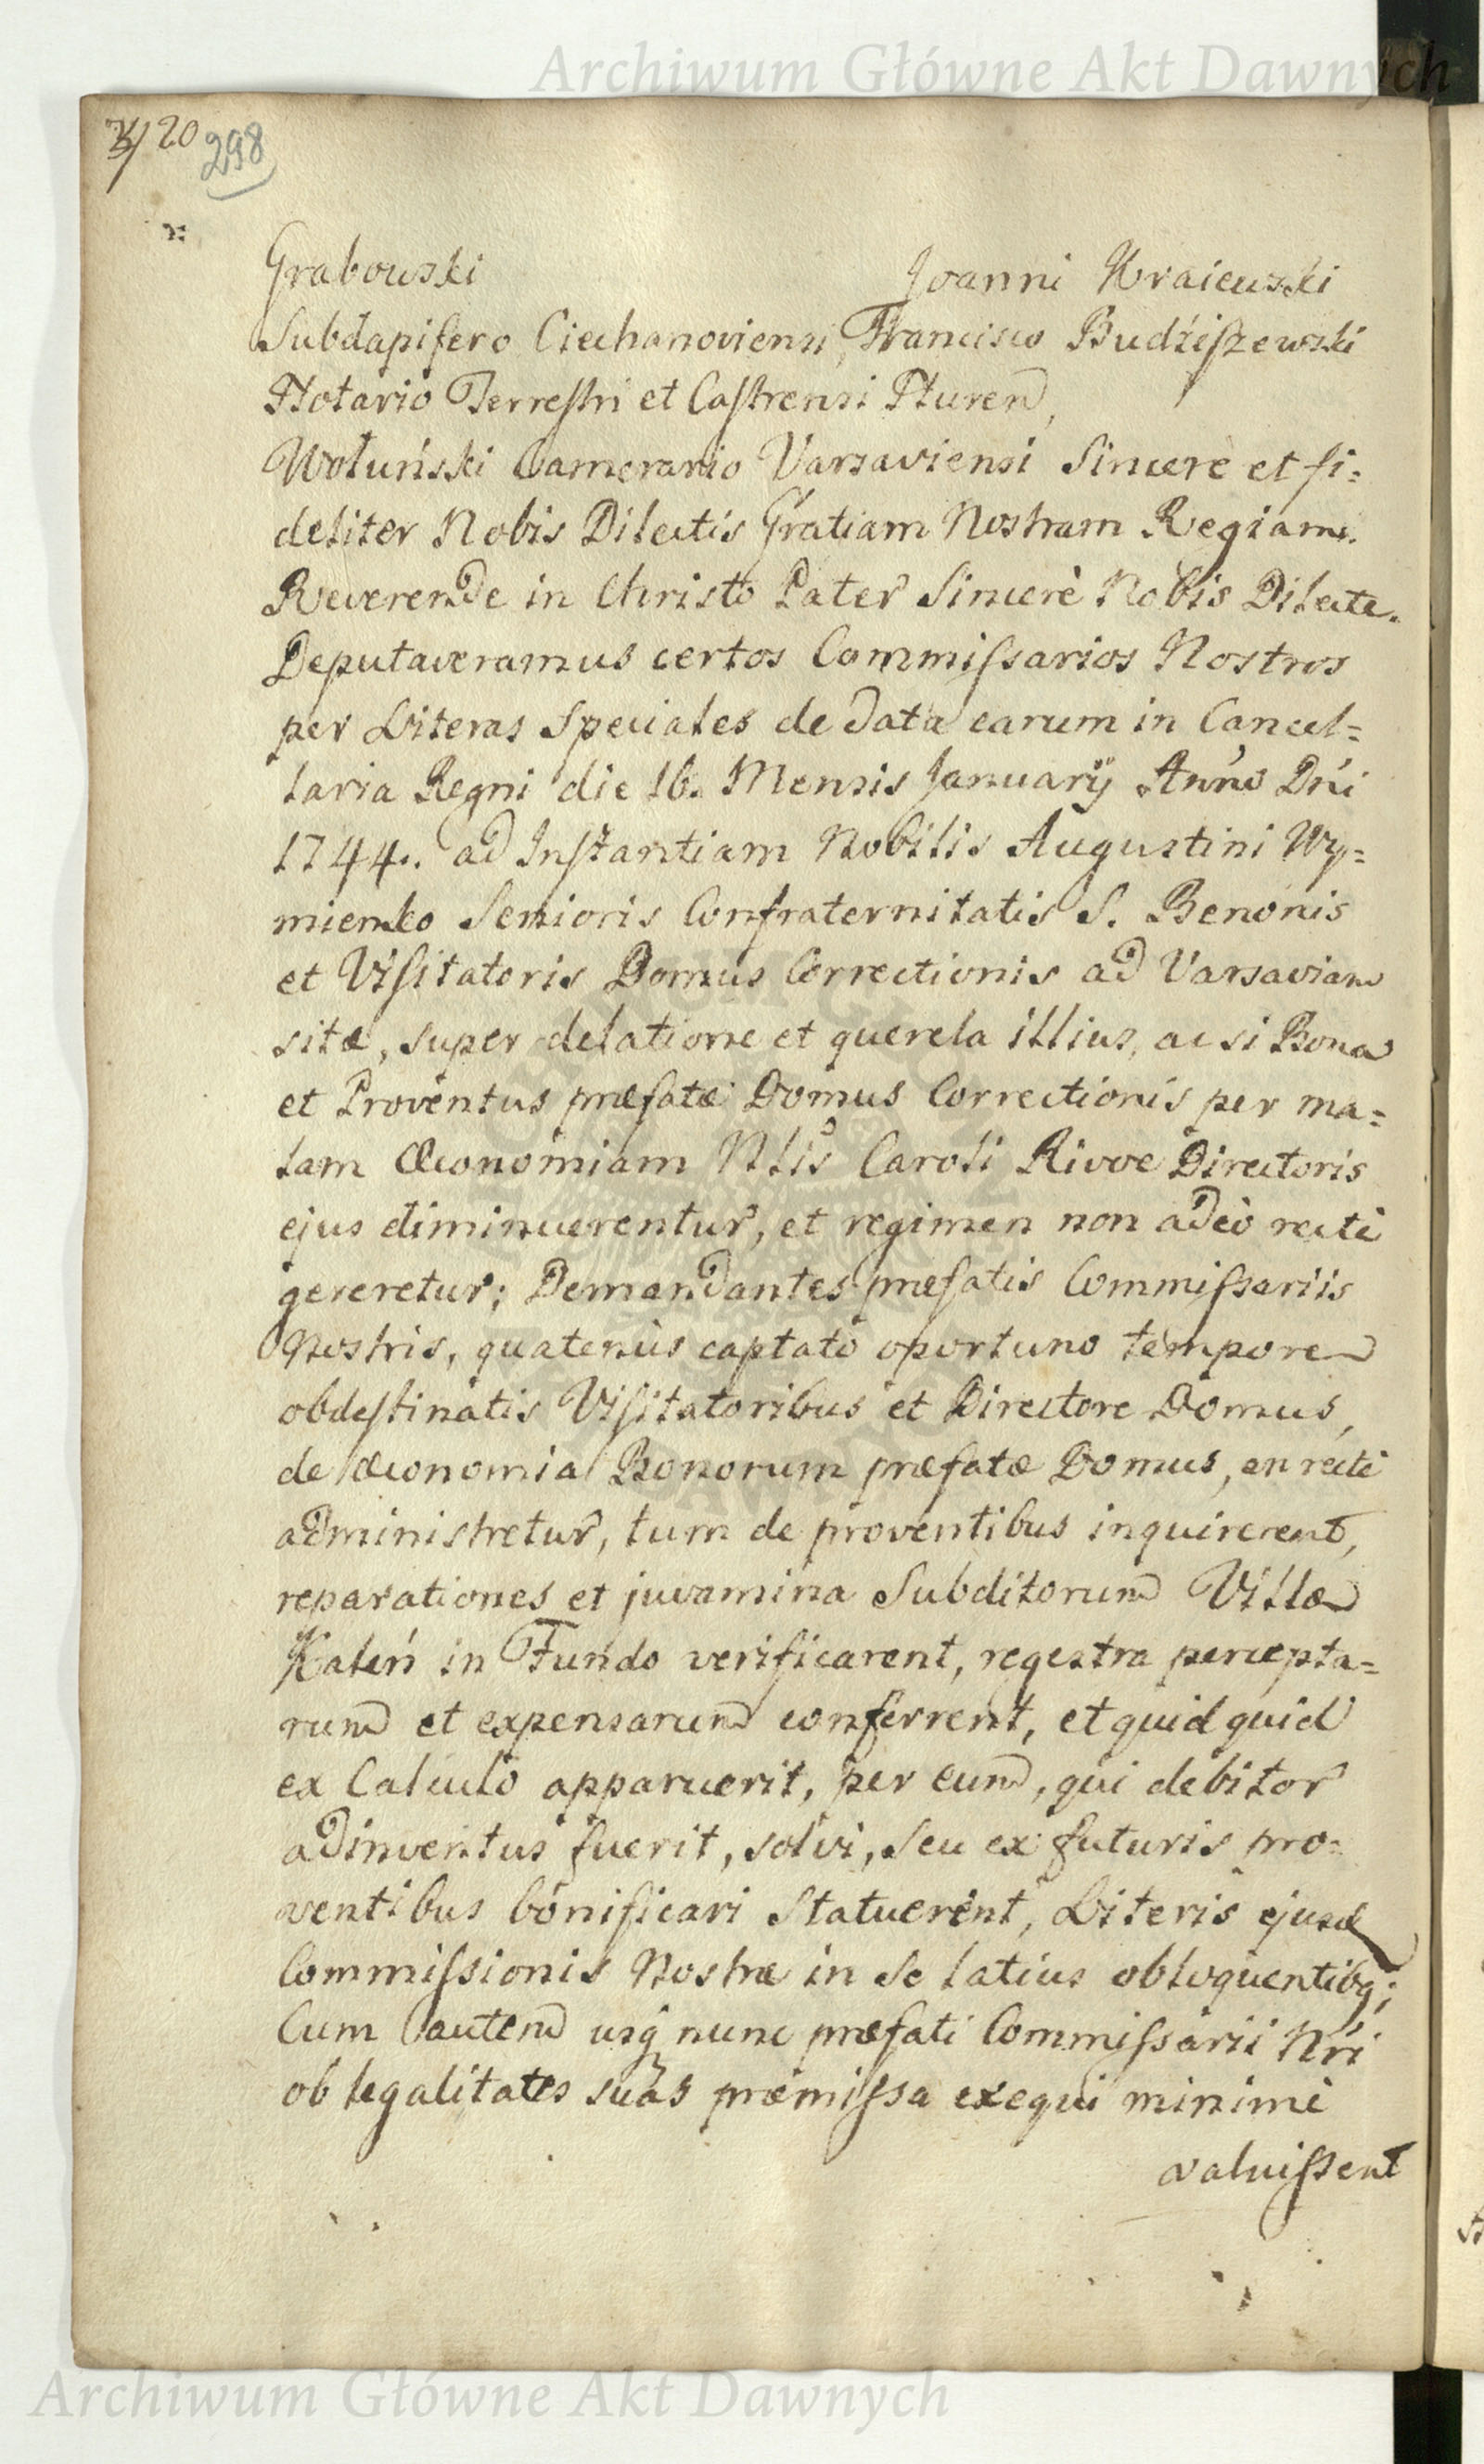 Archiwum Główne Akt Dawnych
20 298
Grabowski Joanni Kraiewski
Subdapifero Ciechanoviensi, Francisco Budźiszewski
Notario Terrestri et Castrensi
Wołuński Camerario Varsaviensi Sincere et fi=
deliter Nobis Dilectis Gratiam Nostram Regiam.
Reverende in Christo Pater Sincerè Nobis Dilecte.
Deputaveramus certos Commissarios Nostros
per Literas Speciales de data earum in Cancel=
laria Regni die 16. Mensis January Anno Dni
1744. ad Instantiam Nobilis Augustini Wy=
mienko Senioris Confraternitatis S. Benonis
et Visitatoris Domus Correctionis ad Varsaviam
sitæ, super delatione et querela illius, ac si Bona
et Proventus præfatæ Domus Correctionis per ma=
lam Œconomiam Nlis Caroli Rivve Directoris
ejus diminuerentur, et regimen non adeò rectè
gereretur; Demandantes præfatis Commissariis
Nostris, quatenùs captato oportuno tempore
obdestinatis Visitatoribus et Directore Domus,
de œconomia Bonorum præfatæ Domus, an rectè
administretur, tum de proventibus inquirerent,
reparationes et juvamina Subditorum Villæ
Kaleń in Fundo verificarent, regestra percepta=
rum et expensarum conferrent, et quid quid
ex Calculo apparuerit, per eum, qui debitor
adinventus fuerit, solvi, seu ex futuris pro=
ventibus bonificari Statuerent, Literis ejusd
Commissionis Nostræ in Se latius obloquentibq;
Cum autem usq nunc præfati Commissarii Nri
ob legalitates suas præmissa exequi minimè
valuissent
Archiwum Główne Akt Dawnych